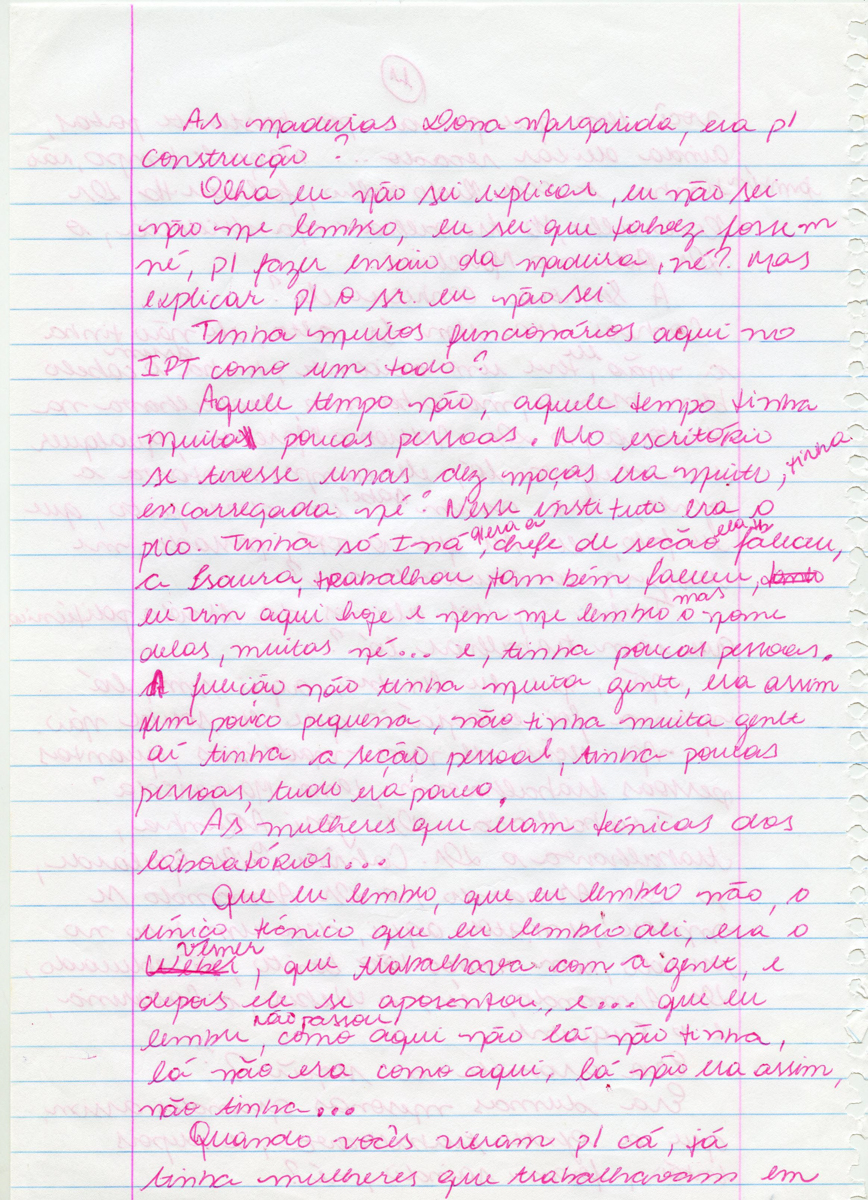 11
As madeiras Dona Margarida, era p/
construcção?
Olha eu não sei explicar, eu não sei
não me lembro, eu sei que talvez fossem
né, p/ fazer ensaio da madeira, né? Mas
explicar p/ o sr. eu não sei
Tinha muitos funcionários aqui no
IPT como um todo?
Aquele tempo não, aquele tempo tinha
muita poucas pessoas. No escritório
se tivesse umas dez moças era muito, tinha
encarregada né? Nesse instituto era o
pico. Tinha só Iná, q era a chefe de seção era sr faleceu,
a Isaura, trabalhou também faleceu,
eu vim aqui hoje e nem me lembro mas o nome
delas, muitas né... e, tinha poucas pessoas.
A feição não tinha muita gente, era assim
um pouco pequena, não tinha muita gente
aí tinha a seção pessoal, tinha poucas
pessoas, tudo era pouco.
As mulheres que eram técnicas dos
laboratórios...
Que eu lembro, que eu lembro não, o
único técnico, que eu lembro ali, era o
Weber verner, que trabalhava com a gente, e
depois ele se aposentou, e... que eu
lembre, não passou, como aqui não lá não tinha,
lá não era como aqui, lá não era assim,
não tinha...
Quando vocês vieram p/ cá, já
tinha mulheres que trabalhavam em